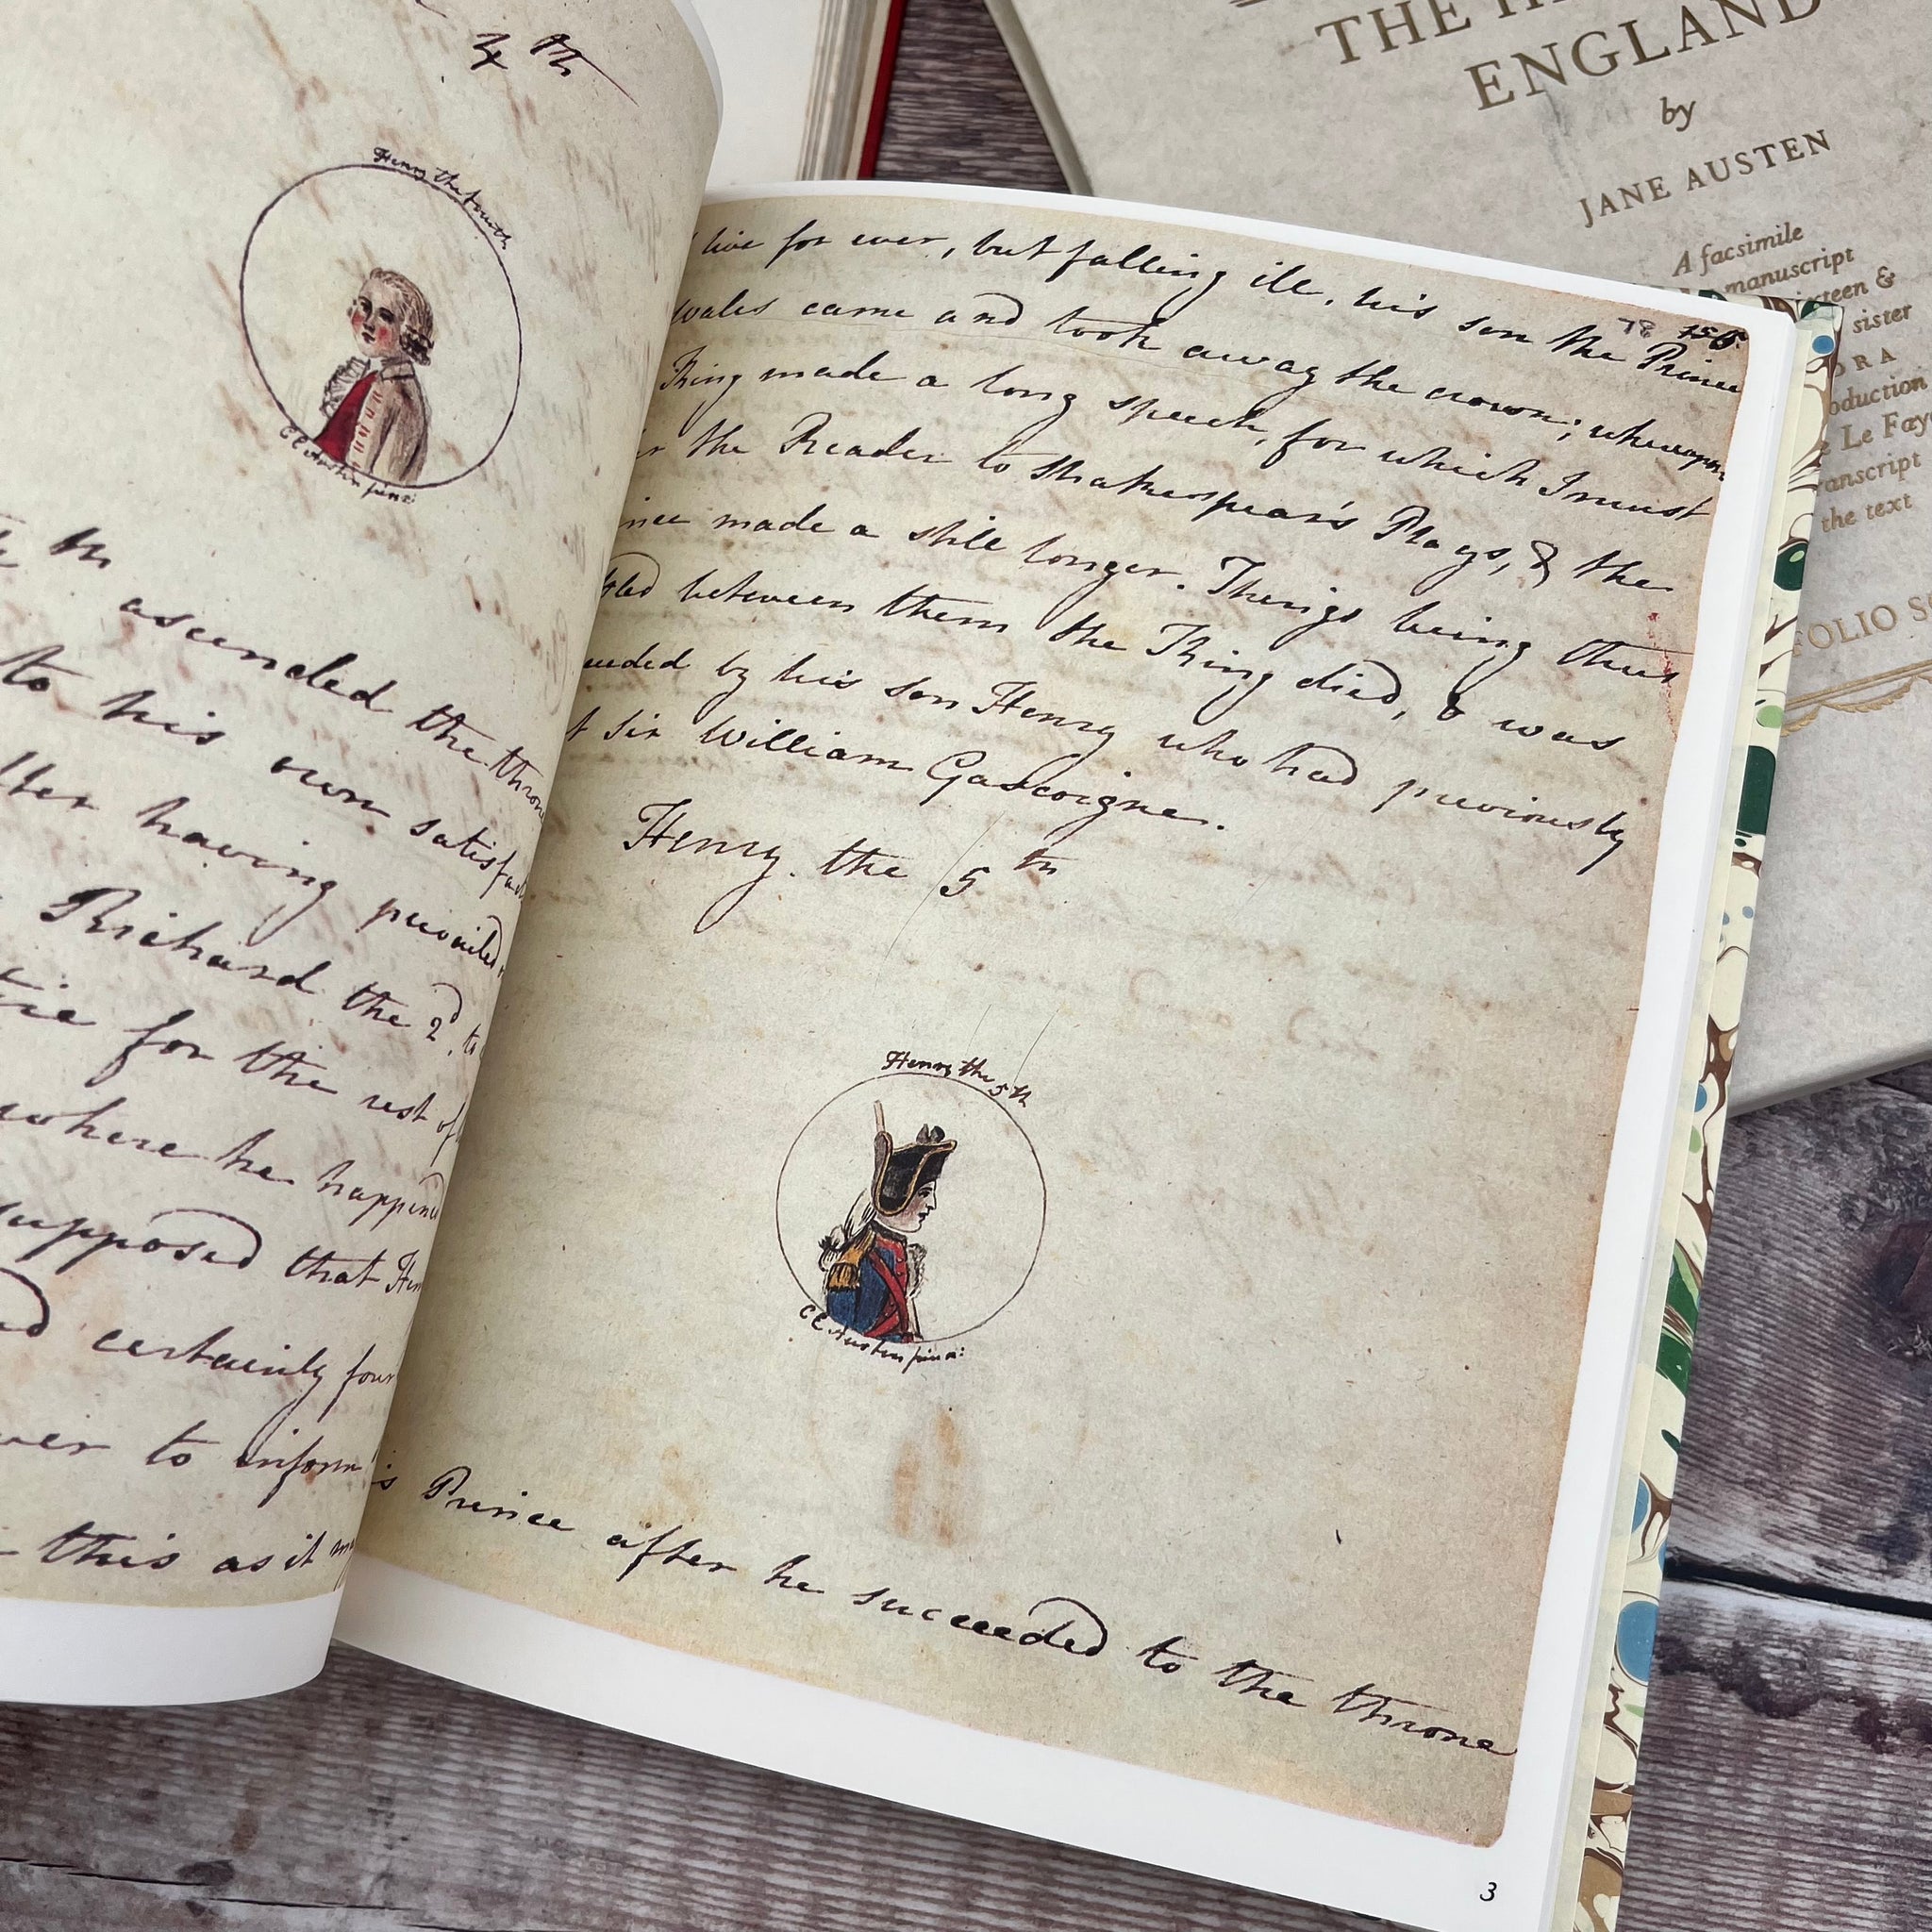 4th
Henry the fourth
CE Austen pinx:
ascended the throne
to his own satisf
having prevailed
Richard the 2d, to
for the rest of
where he happened
supposed that Hen
certainly four
to inform
this as it
live for ever, but falling ill, his son the Prince
wales came and took away the crown; whereupon
King made a long speech, for which I must
the Reader to Shakespear's Plays, & the
made a still longer. Things being thus
between them the King died, & was
by his son Henry who had previously
Sir William Gascoigne.
Henry the 5th
Henry the 5th
CE Austen pinx:
Prince after he succeeded to the throne
78 156.
3
THE
ENGLAND
by
JANE AUSTEN
A facsimile
manuscript
&
sister
Le Fay
the text
FOLIO